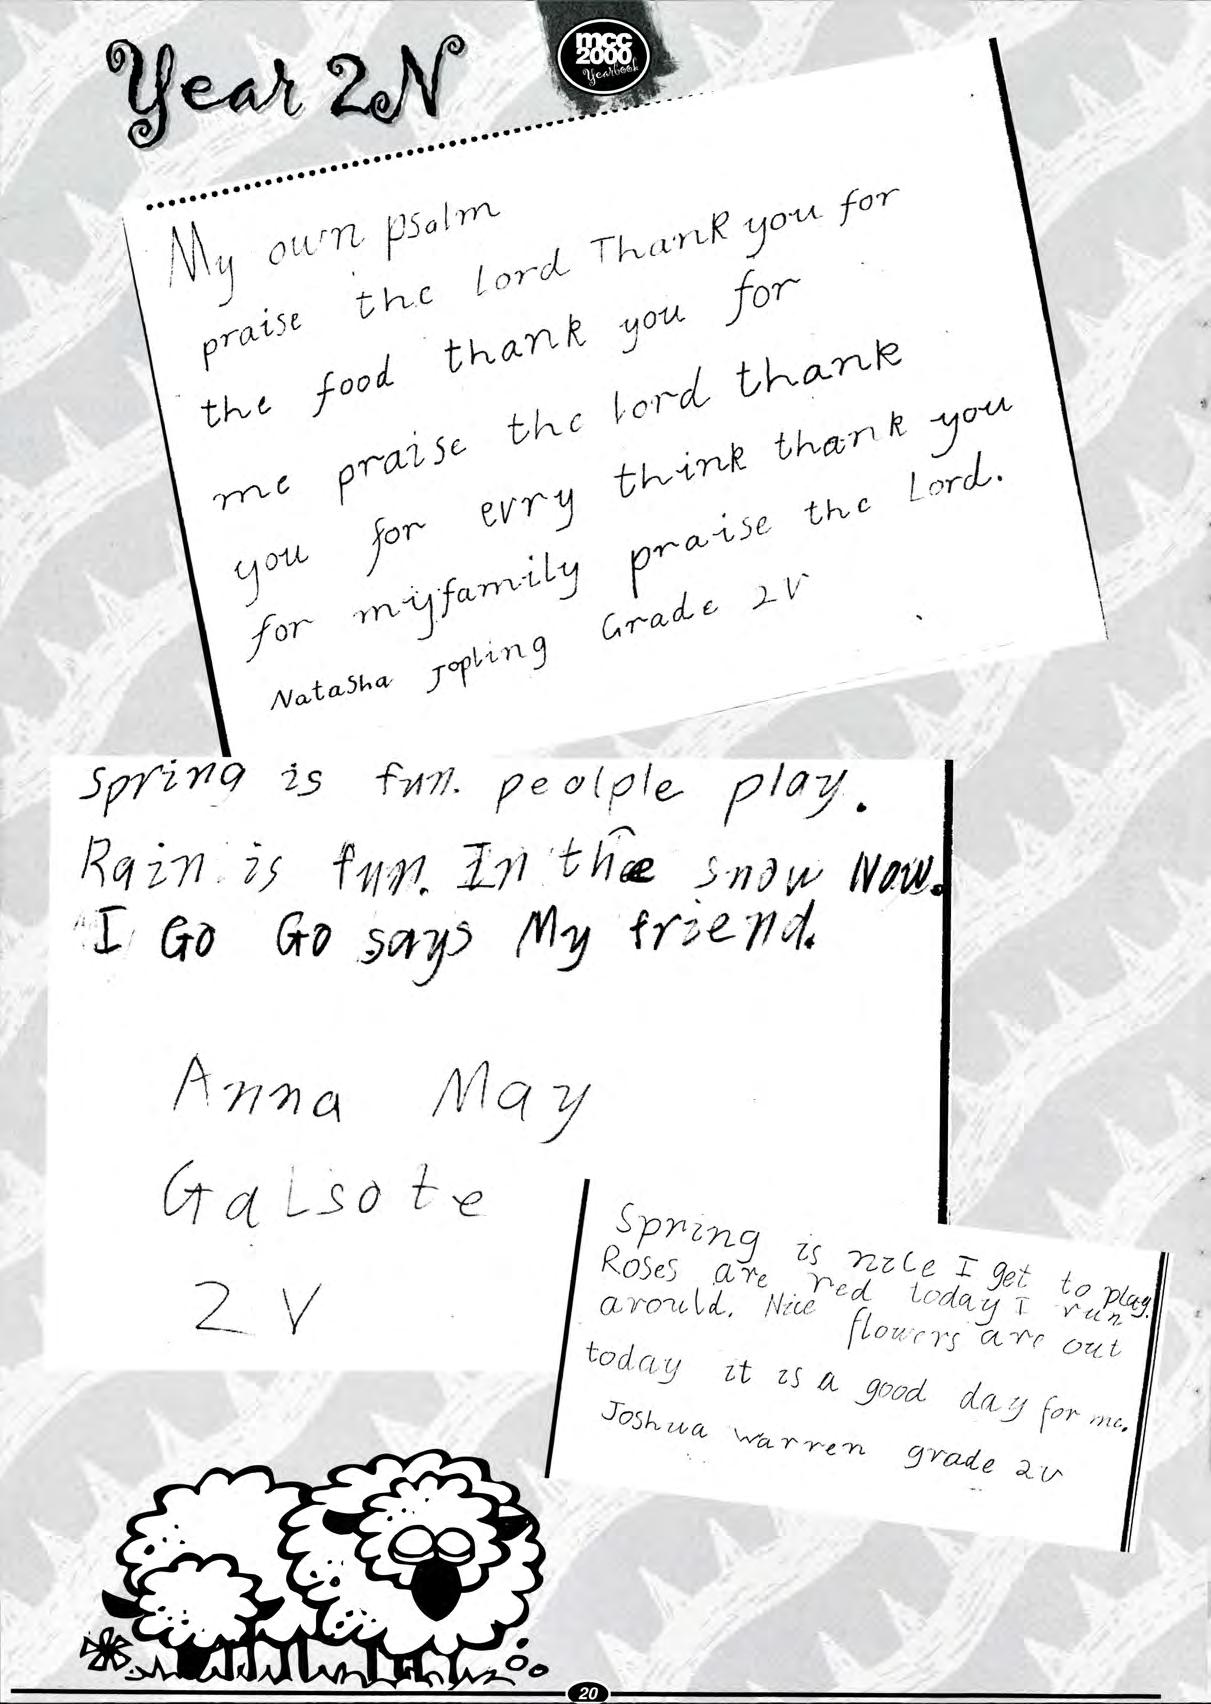 Year 2N
mcc
2000
Yearbook
My own psalm
praise the lord Thank you for
the food thank you for
me praise the lord thank
you for evry think thank you
for my family praise the Lord.
Natasha Jopling Grade 2V
Spring is fun. peolple play.
Rain is fun. In the snow Now.
I Go Go says My friend.
Anna May
Galsote
2V
Spring is nice I get to play.
Roses are red today I run
arould. Nice flowers are out
today it is a good day for me.
Joshua Warren grade 2V
20